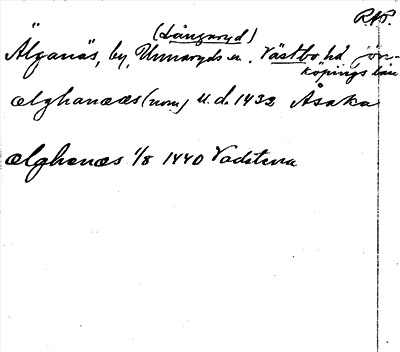 R.A.P.
(Långaryd)
Älganäs, by, Unnaryds sn. Västbo hd Jön-
köpings län
ælghanæs (nom) u.d. 1432 Åsaka
ælghenæs 1/8 1440 Vadstena